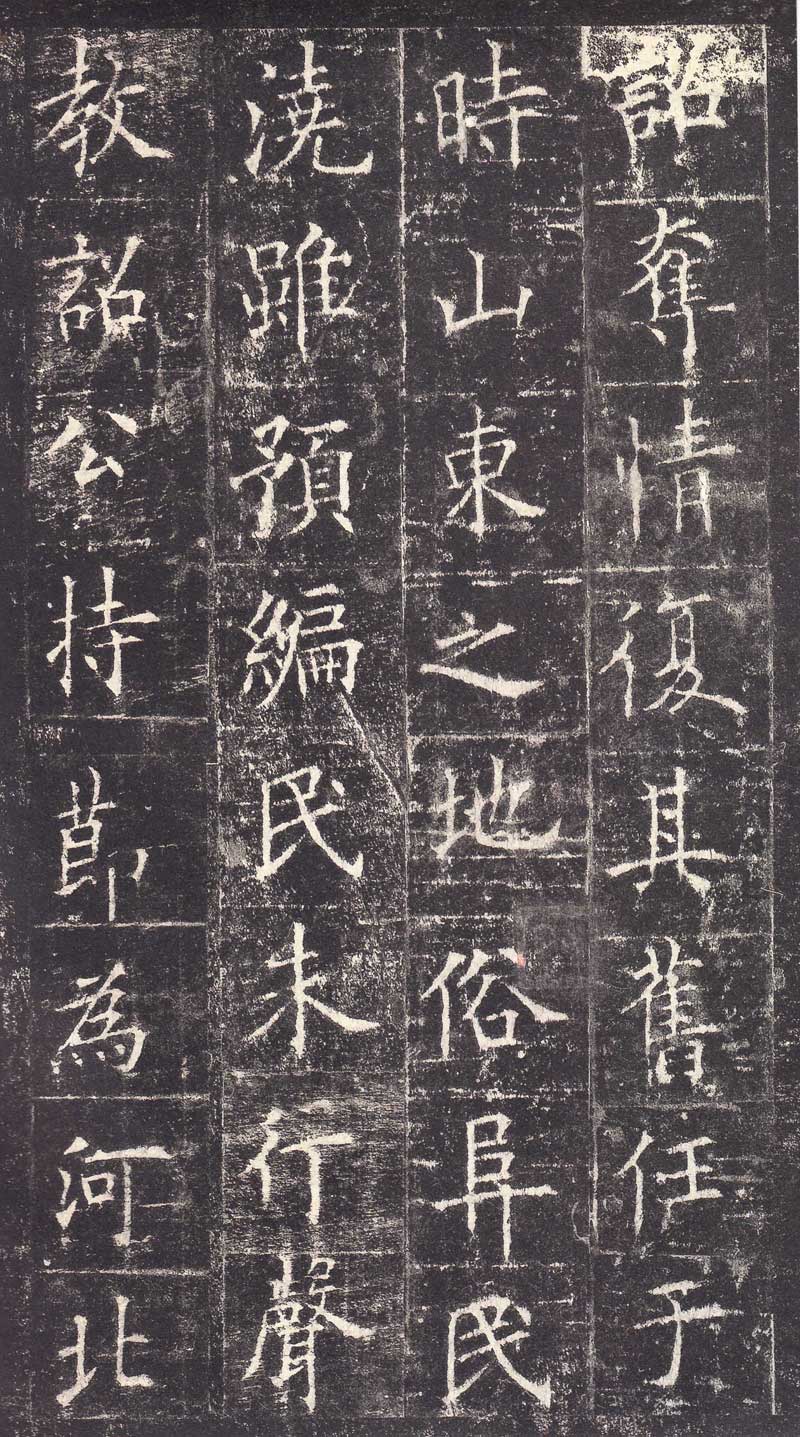 詔奪情復其舊任于
時山東之地俗阜民
澆雖預編民未行聲
教詔公持節為河北